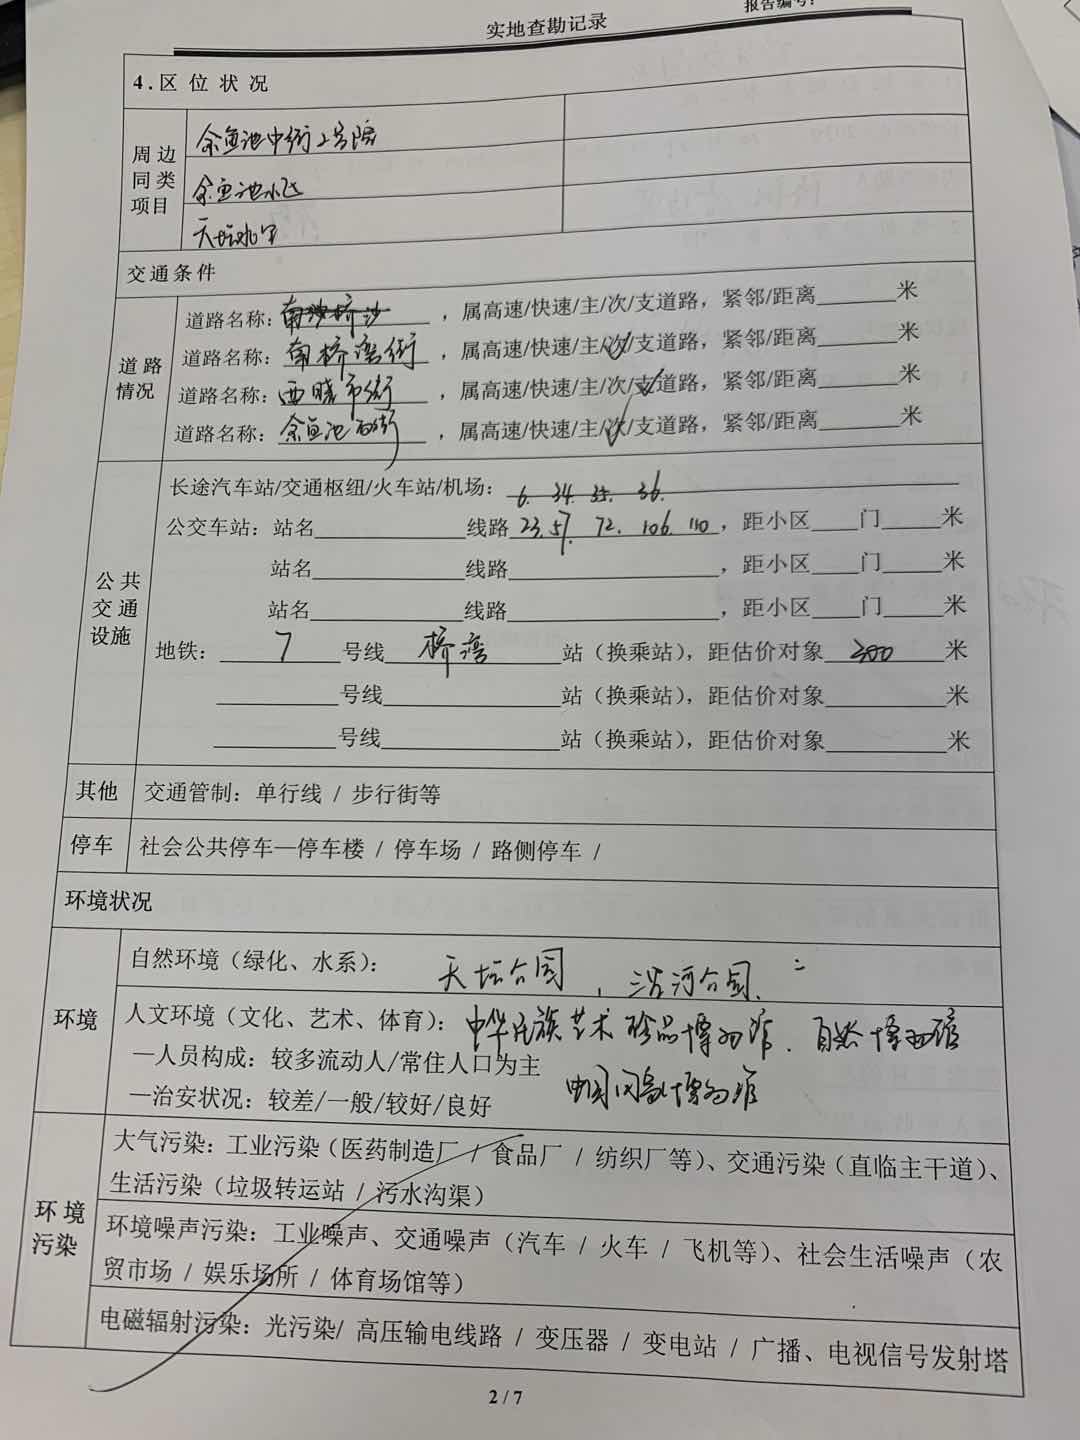 报告编号:
实地查勘记录
4.区位状况
周边同类项目
余鱼池中街2号院
余鱼池小区
天坛
交通条件
道路情况
道路名称: ，属高速/快速/主/次/支道路，紧邻/距离____米
道路名称: 南桥湾街 ，属高速/快速/主/次/支道路，紧邻/距离____米
道路名称: 西晓市街 ，属高速/快速/主/次/支道路，紧邻/距离____米
道路名称: 余鱼池西街 ，属高速/快速/主/次/支道路，紧邻/距离____米
公共交通设施
长途汽车站/交通枢纽/火车站/机场: 6. 34. 35. 36.
公交车站: 站名____线路 23.57. 72. 106. 110 ，距小区____门____米
站名____线路____，距小区____门____米
站名____线路____，距小区____门____米
地铁: 7 号线 桥湾 站（换乘站），距估价对象 200 米
____号线____站（换乘站），距估价对象____米
____号线____站（换乘站），距估价对象____米
其他 交通管制: 单行线 / 步行街等
停车 社会公共停车—停车楼 / 停车场 / 路侧停车 /
环境状况
环境
自然环境（绿化、水系）: 天坛公园，沿河公园.
人文环境（文化、艺术、体育）: 中华民族艺术珍品博物馆、自然博物馆
—人员构成: 较多流动人/常住人口为主
中国 博物馆
—治安状况: 较差/一般/较好/良好
环境污染
大气污染: 工业污染（医药制造厂 / 食品厂 / 纺织厂等）、交通污染（直临主干道）、
生活污染（垃圾转运站 / 污水沟渠）
环境噪声污染: 工业噪声、交通噪声（汽车 / 火车 / 飞机等）、社会生活噪声（农
贸市场 / 娱乐场所 / 体育场馆等）
电磁辐射污染: 光污染/ 高压输电线路 / 变压器 / 变电站 / 广播、电视信号发射塔
2 / 7